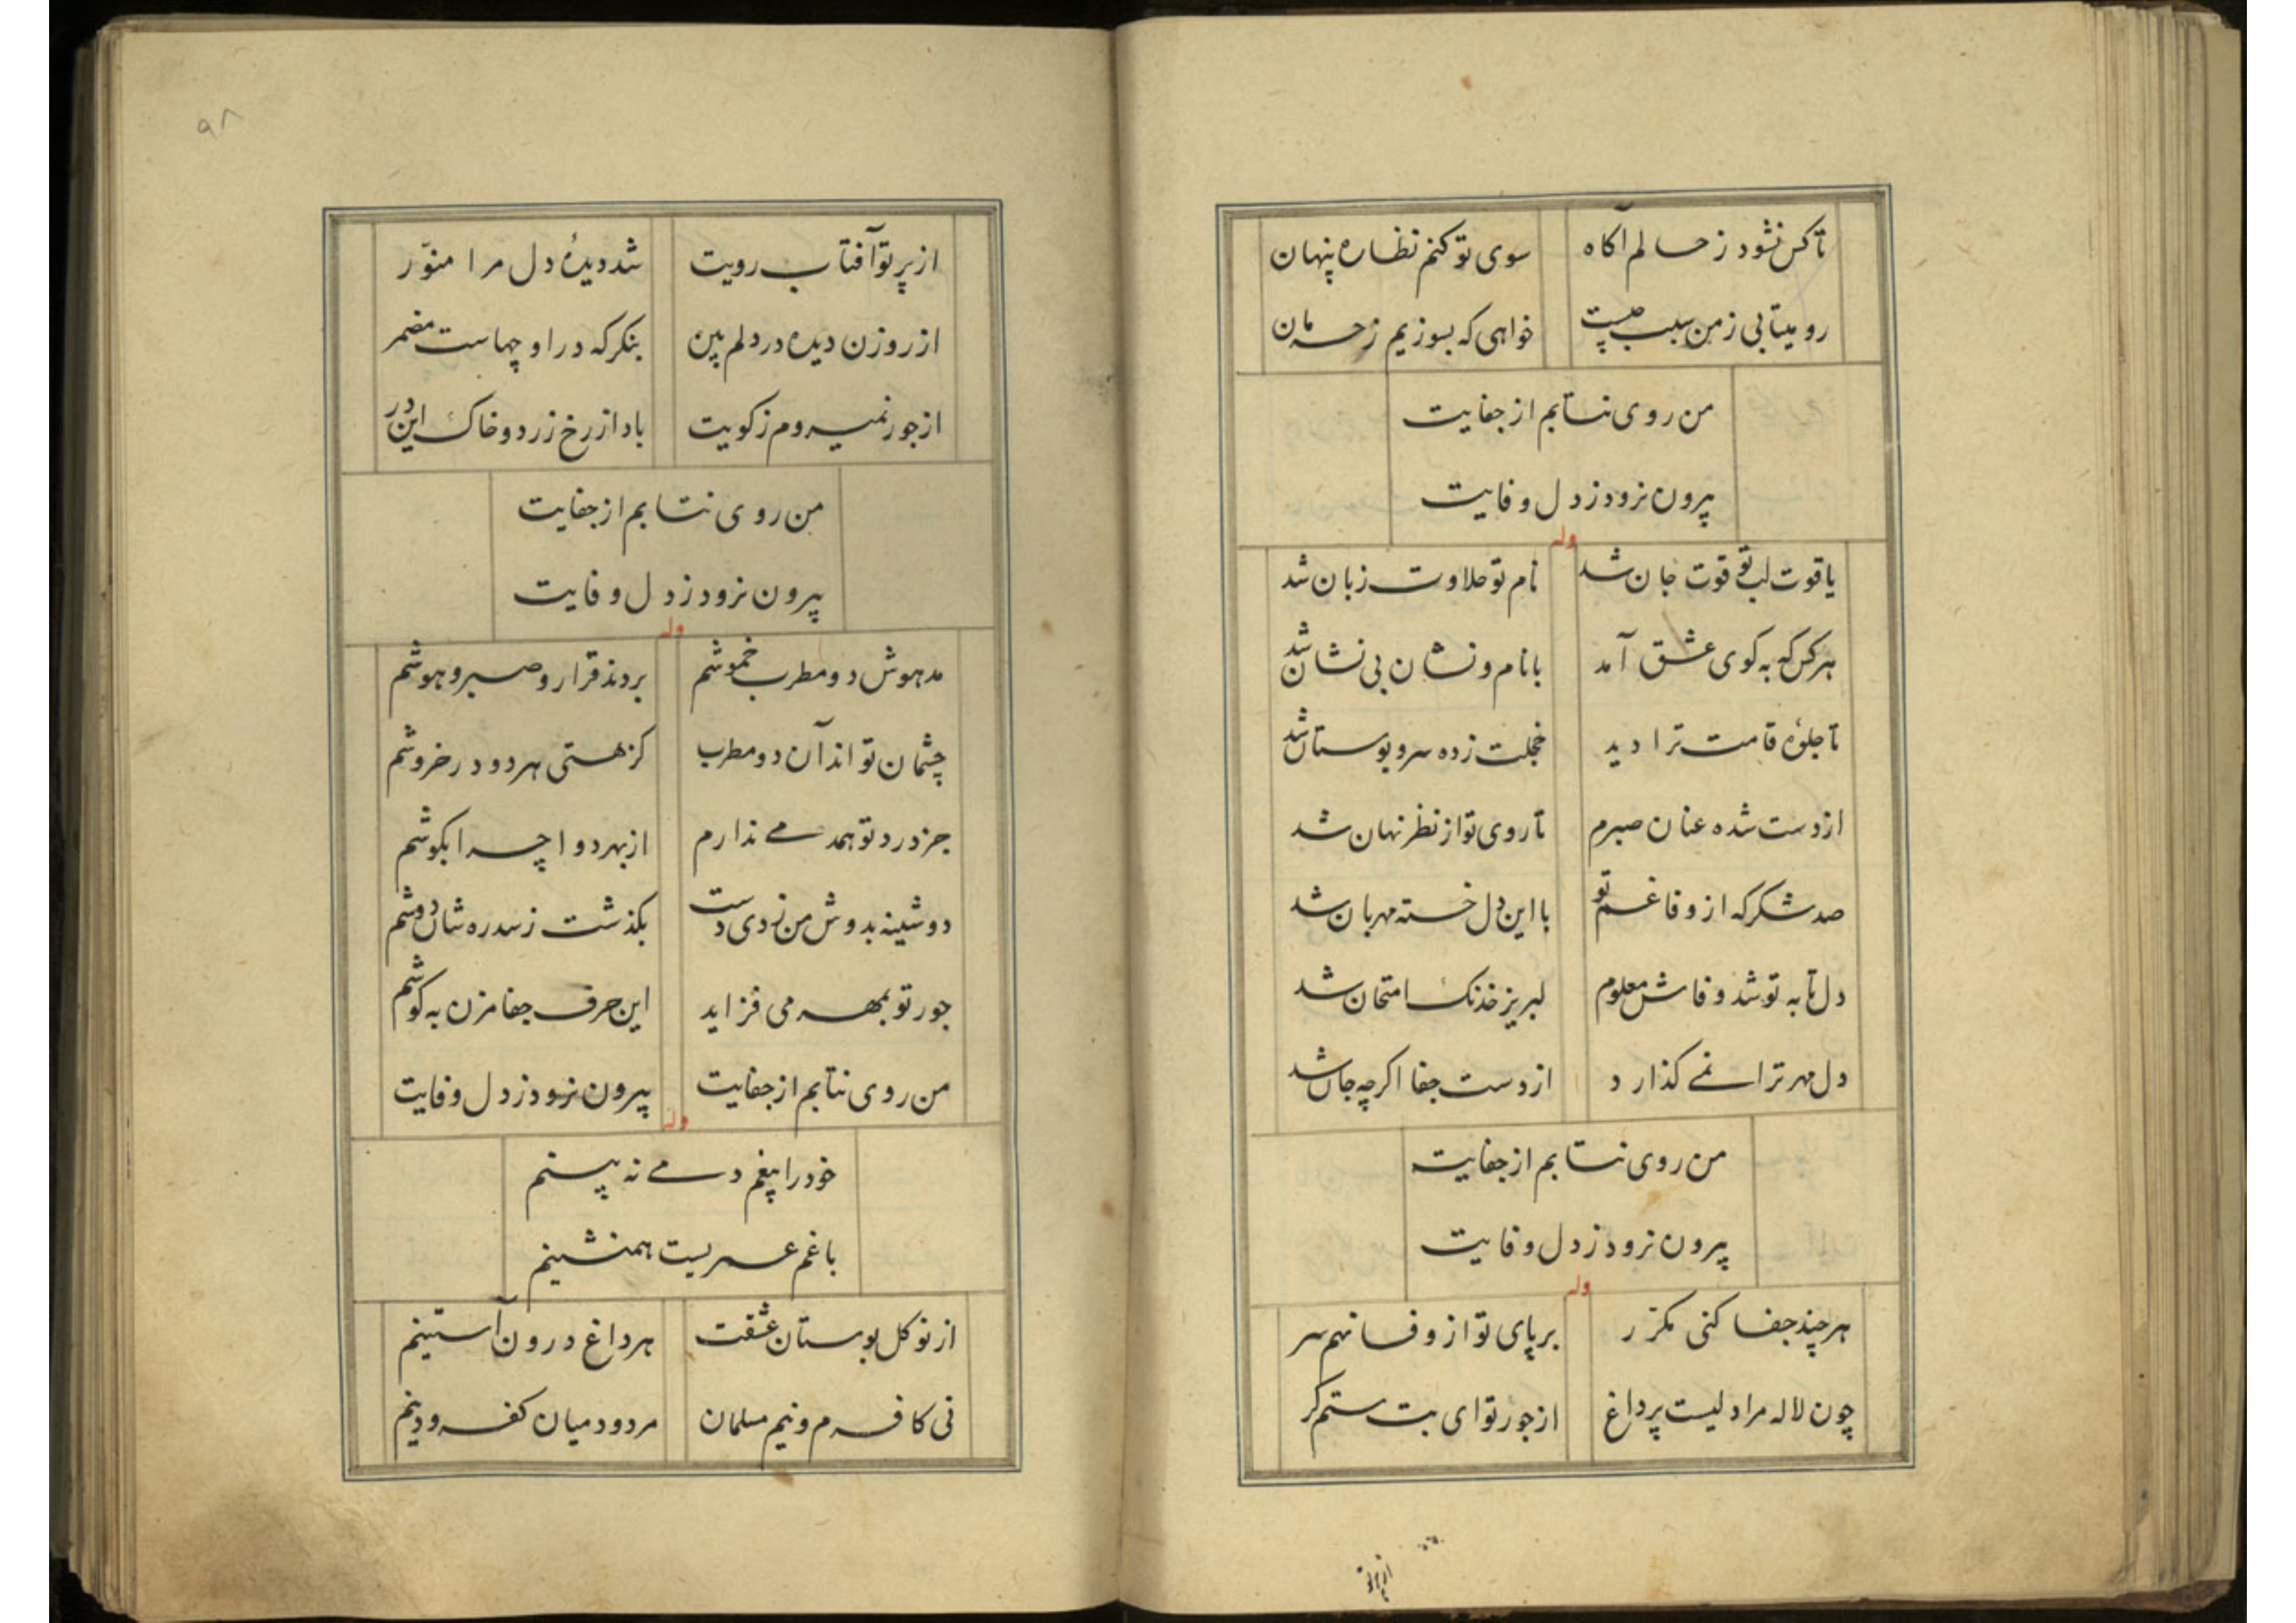 تا کس نشود ز حالم آکاه سوی تو کنم نظاره پنهان
رو میتابی ز من سبب چیست خواهی که بسوزیم ز حرمان
من روی نتابم از جفایت
بیرون نرود ز دل وفایت
وله
یاقوت لب تو قوت جان شد نام تو حلاوت زبان شد
هر کس که به کوی عشق آمد با نام و نشان بی نشان شد
تا جلوهٔ قامت ترا دید خجلت زده سرو بوستان شد
از دست شده عنان صبرم تا روی تو از نظر نهان شد
صد شکر که از وفا غم تو با این دل خسته مهربان شد
دل تا به تو شد وفاش معلوم لبریز خدنک امتحان شد
دل مهر ترا نمے کذارد از دست جفا اکرچه جان شد
من روی نتابم از جفایت
بیرون نرود ز دل وفایت
وله
هر چند جفا کنی مکرّر بر پای تو از وفا نهم سر
چون لاله مرا دلیست پر داغ از جور تو ای بت ستم کر
از پرتو
۹۸
از پرتو آفتاب رویت شد دیدهٔ دل مرا منوّر
از روزن دیده در دلم بین بنکر که در او چهاست مضمر
از جور نمیروم ز کویت باد از رخ زرد و خاک این در
من روی نتابم از جفایت
بیرون نرود ز دل وفایت
وله
مدهوش دو مطرب خموشم بردند قرار و صبر و هوشم
چشمان تواند آن دو مطرب کز مستی هر دو در خروشم
جز درد تو همدمے ندارم از بهر دوا چرا بکوشم
دوشینه بدوش من زدی دست بکذشت ز سدره شان دوشم
جور تو بمهر می فزاید این حرف جفا مزن به کوشم
من روی نتابم از جفایت بیرون نرود ز دل وفایت
وله
خود را بیغم دمے نه بینم
با غم عمریست همنشینم
از نو کل بوستان عشقت هر داغ درون آستینم
نی کافرم و نیم مسلمان مردود میان کفر و دینم